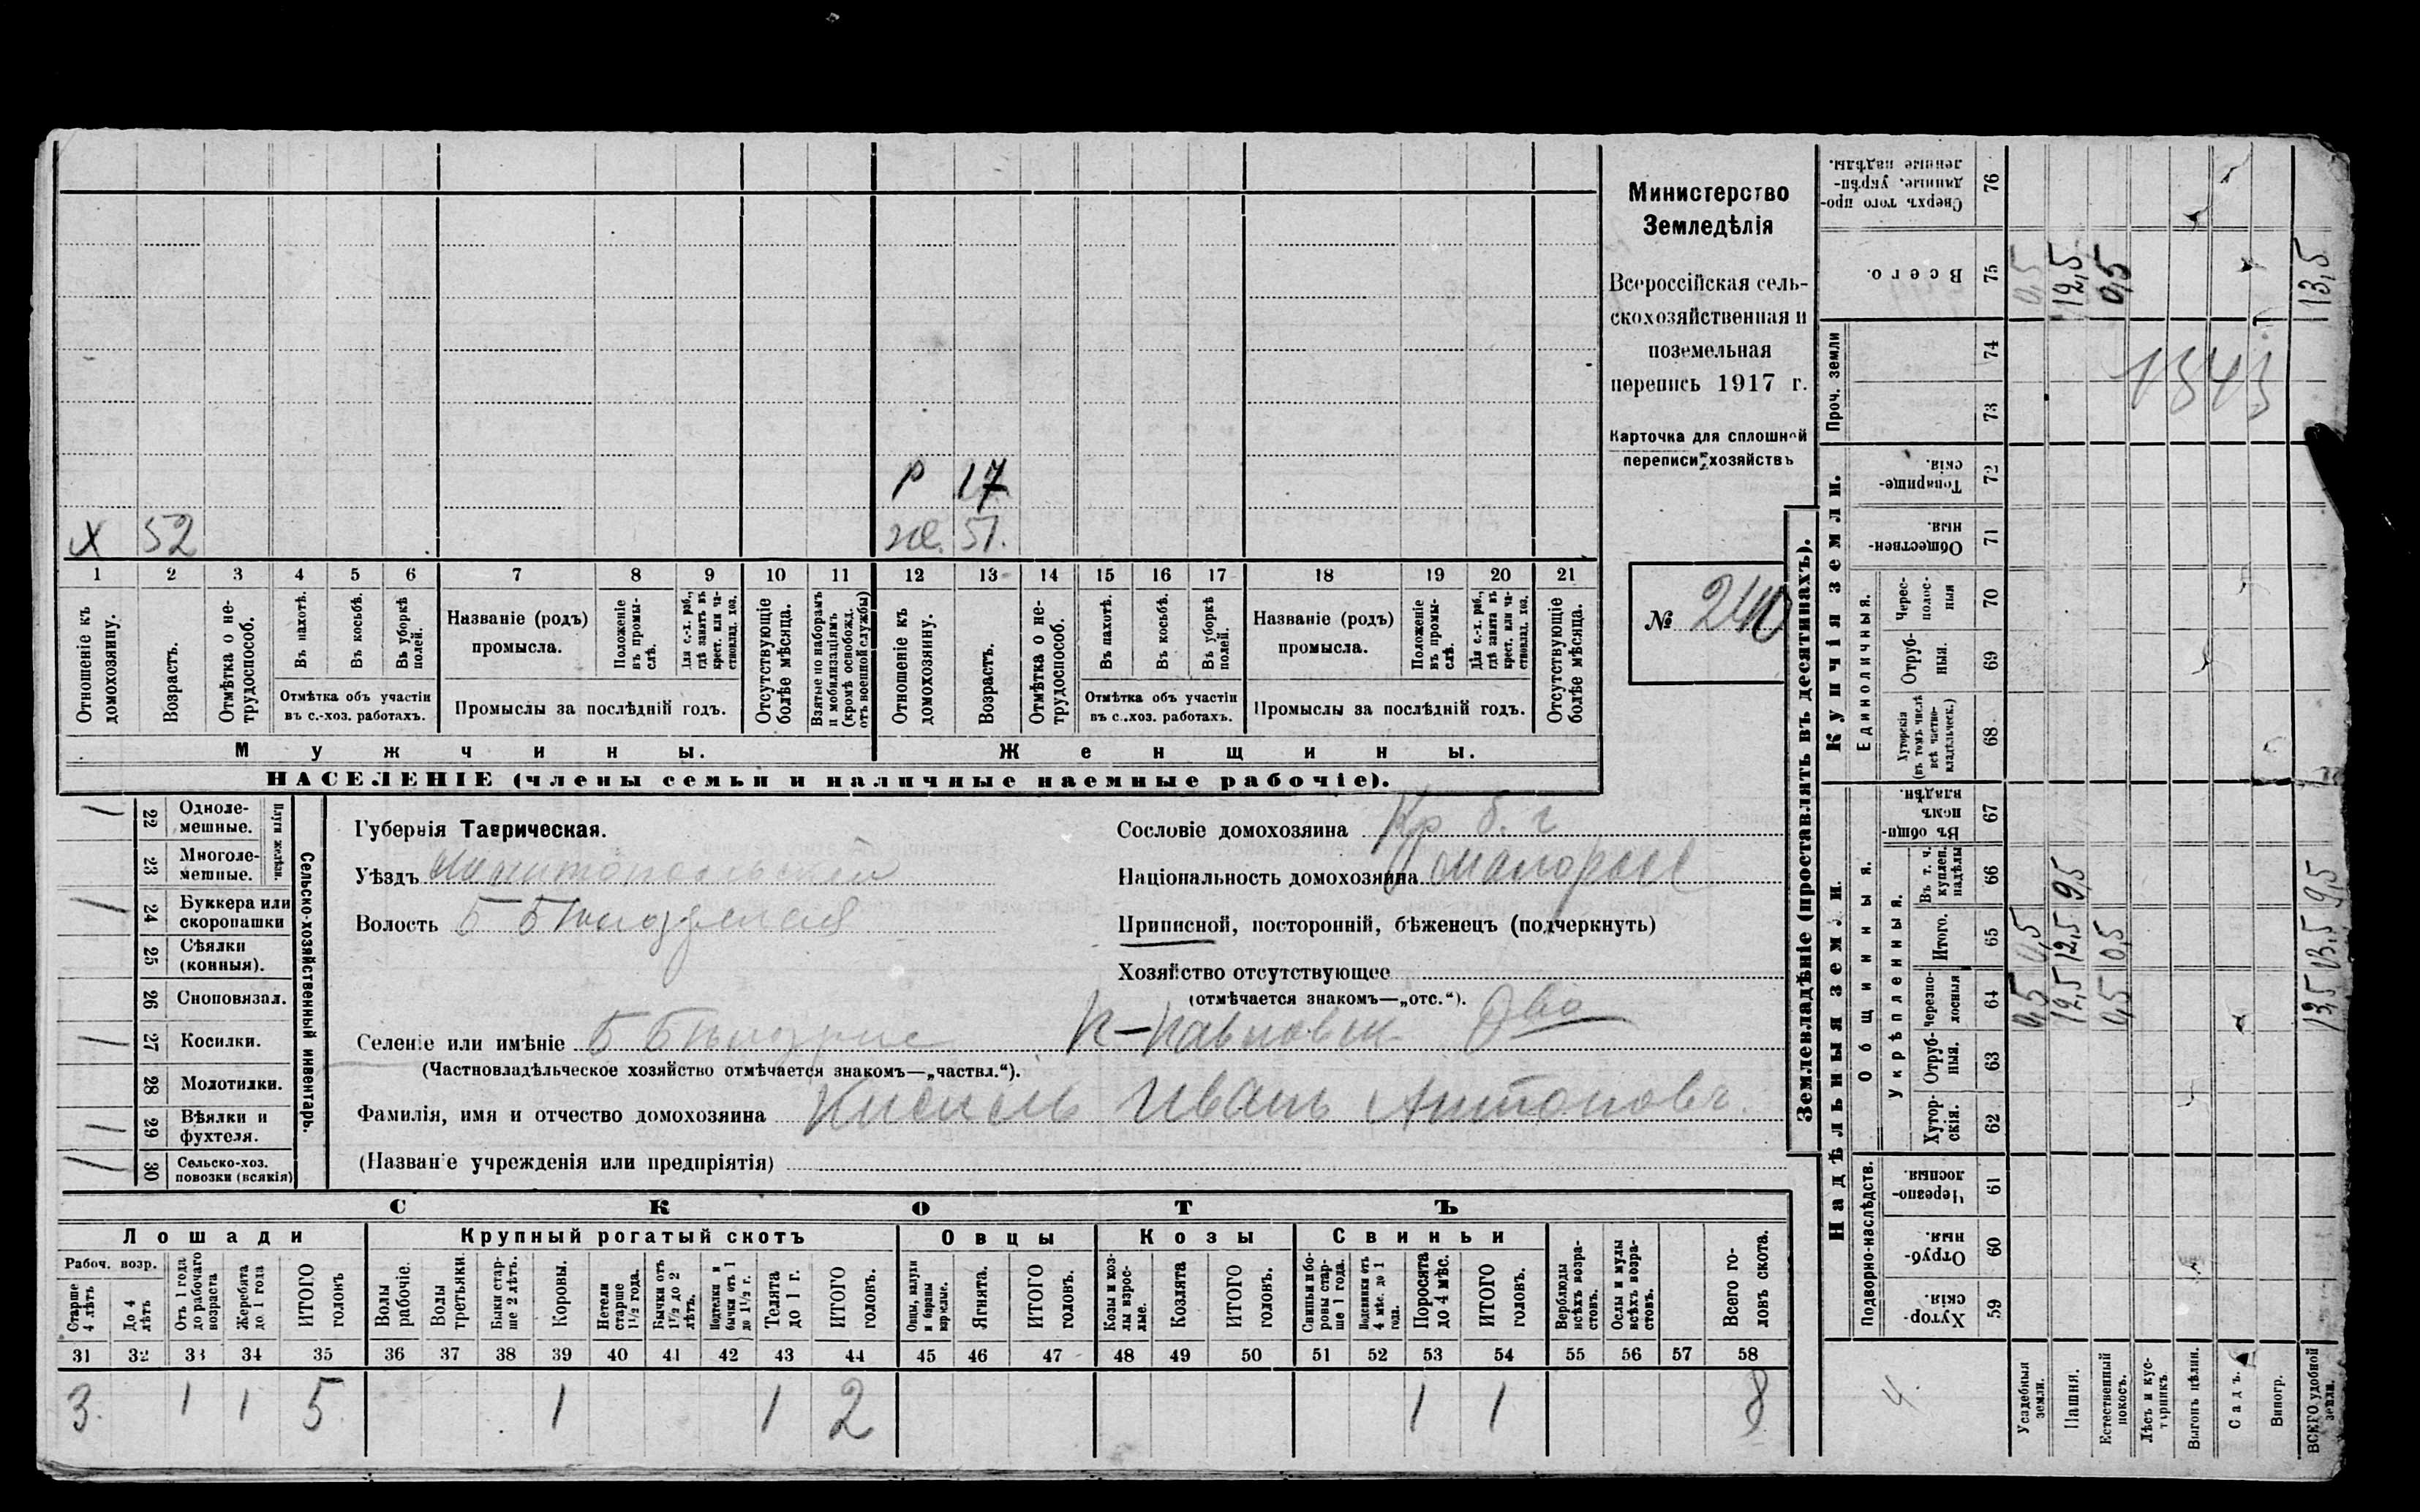 Министерство
Земледѣлія
Всероссійская сель-
скохозяйственная и
поземельная
перепись 1917 г.
Карточка для сплошной
переписи хозяйствъ
№ 240
Р 17
Х 52 же. 51.
1 2 3 4 5 6 7 8 9 10 11 12 13 14 15 16 17 18 19 20 21
Отношеніе къ домохозяину.
Возрастъ.
Отмѣтка о не-трудоспособ.
Въ пахотѣ.
Въ косьбѣ.
Въ уборкѣ полей.
Отмѣтка объ участіи
въ с.-хоз. работахъ.
Названіе (родъ)
промысла.
Положеніе въ промы-слѣ.
Для с.-х. раб., гдѣ занятъ въ крест. или ча-стновлад. хоз.
Промыслы за послѣдній годъ.
Отсутствующіе болѣе мѣсяца.
Взятые по наборамъ и мобилизаціямъ (кромѣ освобожд. отъ военной службы)
Отношеніе къ домохозяину.
Возрастъ.
Отмѣтка о не-трудоспособ.
Въ пахотѣ.
Въ косьбѣ.
Въ уборкѣ полей.
Отмѣтка объ участіи
въ с.-хоз. работахъ.
Названіе (родъ)
промысла.
Положеніе въ промы-слѣ.
Для с.-х. раб., гдѣ занята въ крест. или ча-стновлад. хоз.
Промыслы за послѣдній годъ.
Отсутствующіе болѣе мѣсяца.
Мужчины. Женщины.
НАСЕЛЕНІЕ (члены семьи и наличные наемные рабочіе).
Сельско-хозяйственный инвентарь.
Плуги желѣзн.
/ 22 Одноле-мешные.
23 Многоле-мешные.
/ 24 Буккера или скоропашки
25 Сѣялки (конныя).
26 Сноповязал.
/ 27 Косилки.
28 Молотилки.
/ 29 Вѣялки и фухтеля.
/ 30 Сельско-хоз. повозки (всякія)
Губернія Таврическая.
Уѣздъ Мелитопольскій
Волость Б Бѣлозерская
Селеніе или имѣніе Б Бѣлозерка П-Павловск. Два
(Частновладѣльческое хозяйство отмѣчается знакомъ—„частвл.“).
Фамилія, имя и отчество домохозяина Кисель Иванъ Антоновъ.
(Названіе учрежденія или предпріятія)
Сословіе домохозяина Кр б. г
Національность домохозяина малорос
Приписной, посторонній, бѣженецъ (подчеркнуть)
Хозяйство отсутствующее
(отмѣчается знакомъ—„отс.“).
СКОТЪ
Лошади Крупный рогатый скотъ Овцы Козы Свиньи
Рабоч. возр.
Старше 4 лѣтъ
До 4 лѣтъ
Отъ 1 года до рабочаго возраста
Жеребята до 1 года
ИТОГО головъ
Волы рабочіе.
Волы третьяки.
Быки стар-ше 2 лѣтъ.
Коровы.
Нетели старше 1 1/2 года.
Бычки отъ 1 1/2 до 2 лѣтъ.
Подтелки и бычки отъ 1 до 1 1/2 г.
Телята до 1 г.
ИТОГО головъ.
Овцы, валухи и бараны взрослые.
Ягнята.
ИТОГО головъ.
Козы и коз-лы взрос-лые.
Козлята
ИТОГО головъ.
Свиньи и бо-ровы стар-ше 1 года.
Подсвинки отъ 4 мѣс. до 1 года.
Поросята до 4 мѣс.
ИТОГО головъ.
Верблюды всѣхъ возра-стовъ.
Ослы и мулы всѣхъ возра-стовъ.
Всего го-ловъ скота.
31 32 33 34 35 36 37 38 39 40 41 42 43 44 45 46 47 48 49 50 51 52 53 54 55 56 57 58
3. 1 1 5 1 1 2 1 1 8
Землевладѣніе (проставлять въ десятинахъ).
Надѣльныя земли. Купчія земли. Проч. земли
Подворно-наслѣдств.
Общинныя.
Укрѣпленныя.
Единоличныя.
59 Хутор-скія.
60 Отруб-ныя.
61 Черезпо-лосныя
62 Хутор-скія.
63 Отруб-ныя.
64 Черезпо-лосныя
65 Итого.
66 Въ т. ч. куплен. надѣлы
67 Въ общин-номъ владѣн.
68 Хуторскія (въ томъ числѣ всѣ частно-владѣльческ.)
69 Отруб-ныя.
70 Черес-полос-ныя
71 Обществен-ныя.
72 Товарище-скія.
73
74
75 Всего.
76 Сверхъ того про-данные, укрѣп-ленные надѣлы.
Усадебныя земли. 0,5 0,5 0,5
Пашня. 12,5 12,5 9,5 12,5
Естественный покосъ. 0,5 0,5 0,5
Лѣсъ и кус-тарникъ.
Выгонъ цѣлин.
Садъ.
Виногр.
ВСЕГО удобной земли. 13,5 13,5 9,5 13,5
1343
4.